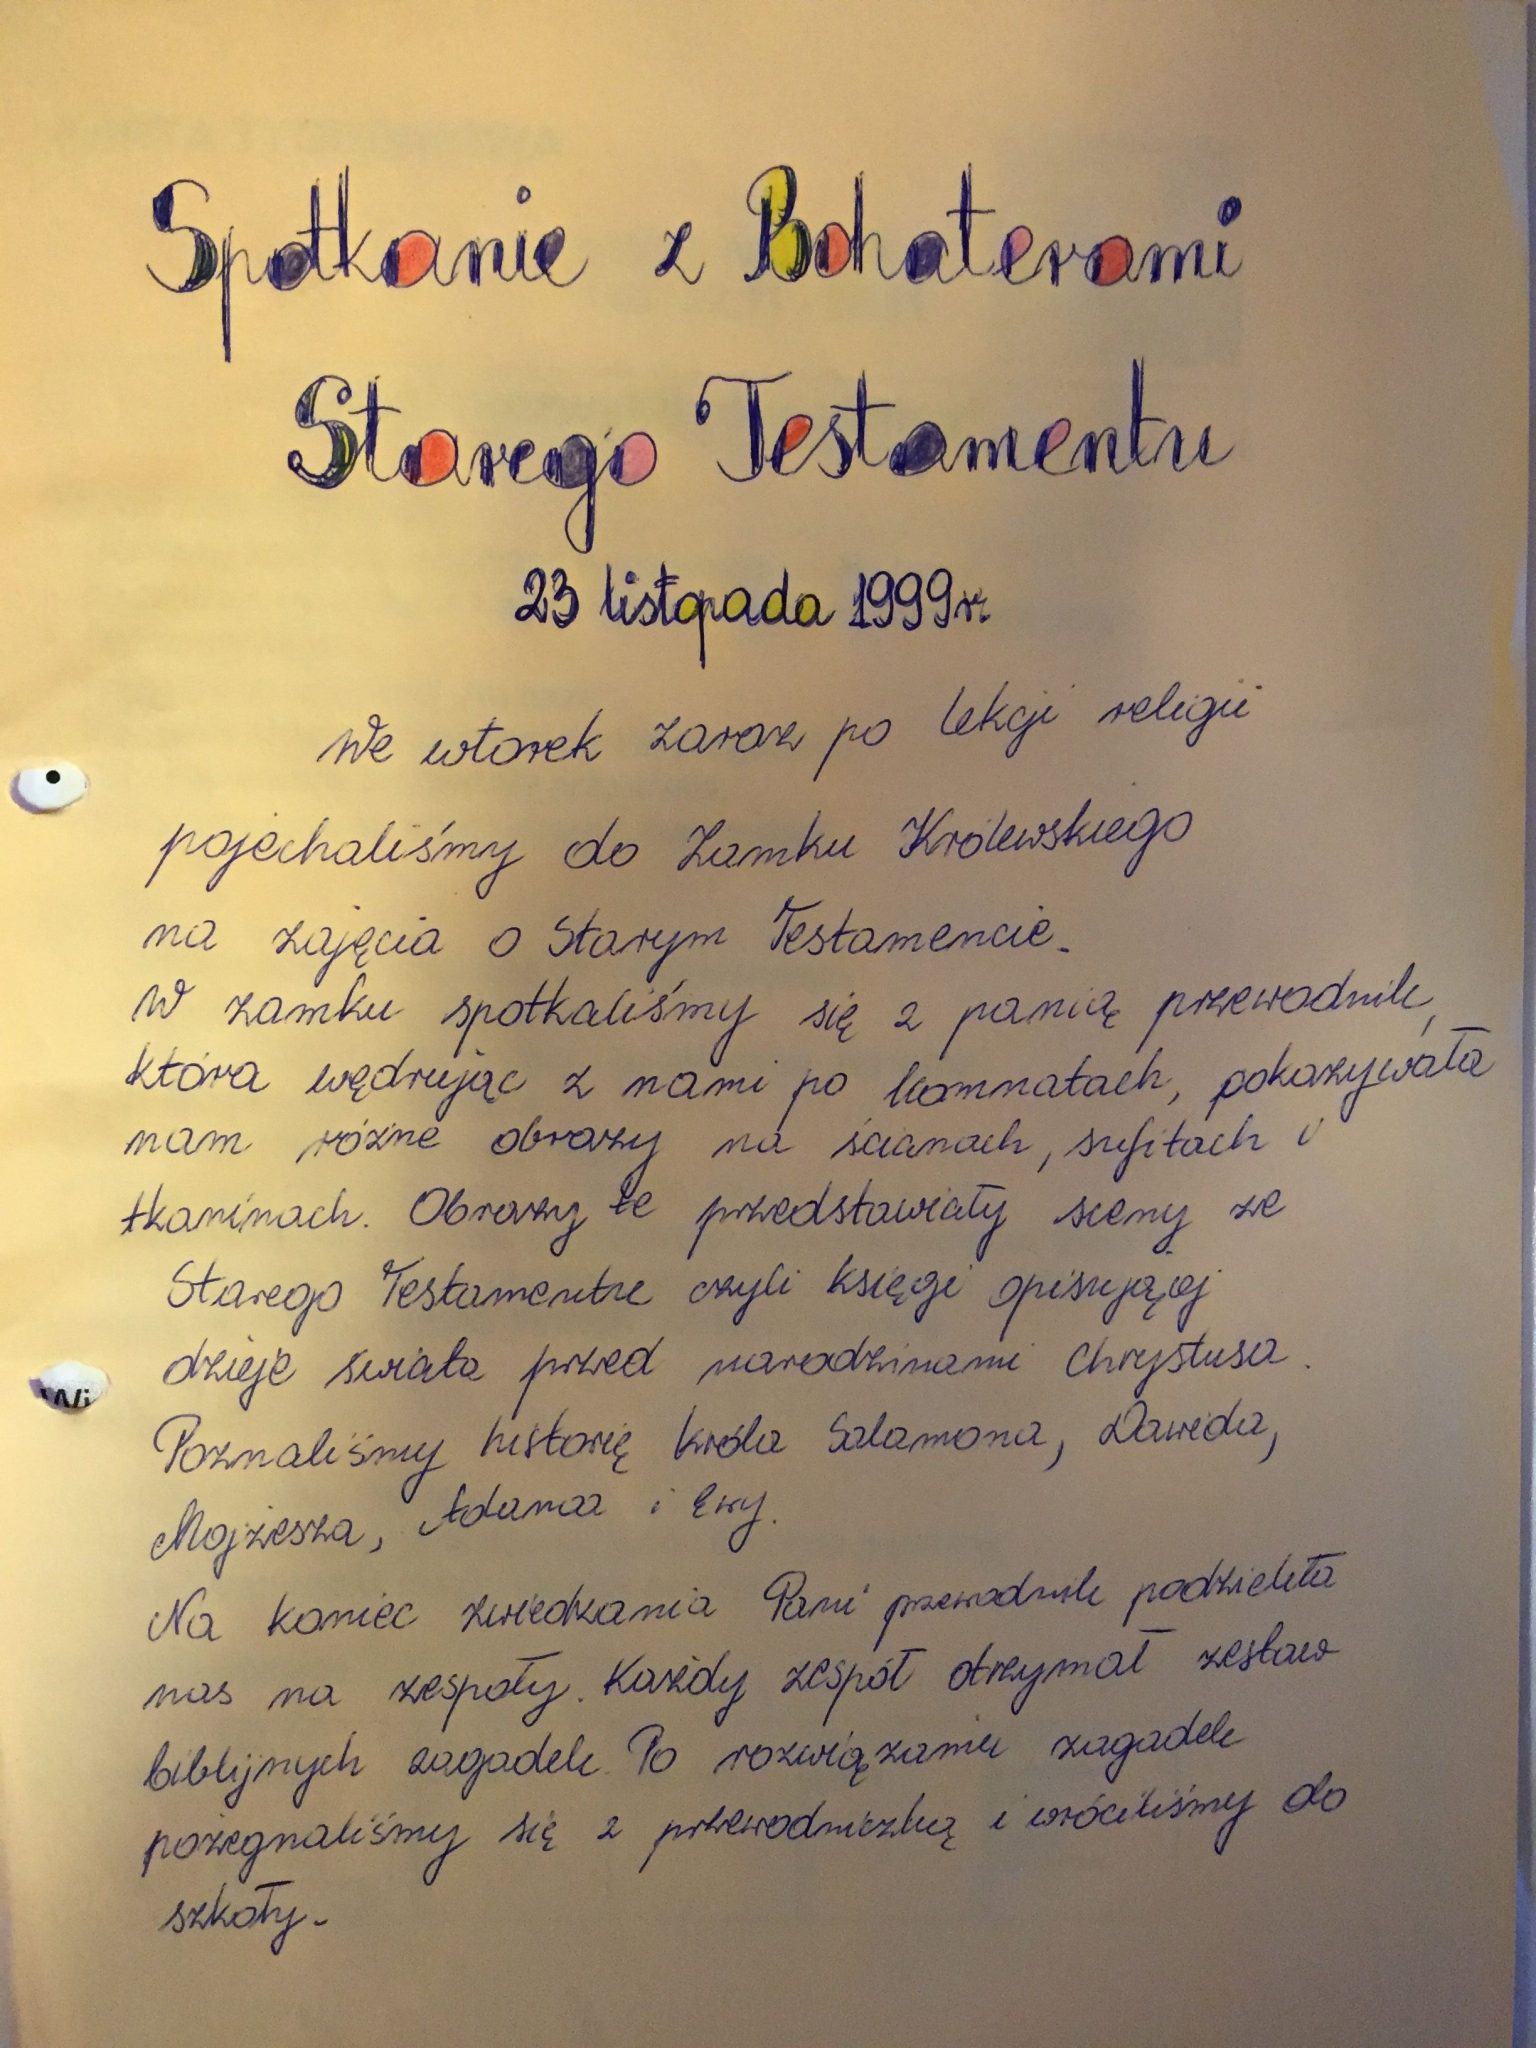 Spotkanie z Bohaterami
Starego Testamentu
23 listopada 1999r.
We wtorek zaraz po lekcji religii
pojechaliśmy do Zamku Królewskiego
na zajęcia o Starym Testamencie.
W zamku spotkaliśmy się z panią przewodnik,
która wędrując z nami po komnatach, pokazywała
nam różne obrazy na ścianach, sufitach i
tkaninach. Obrazy te przedstawiały sceny ze
Starego Testamentu czyli księgi opisującej
dzieje świata przed narodzinami Chrystusa.
Poznaliśmy historię króla Salamona, Dawida,
Mojżesza, Adama i Ewy.
Na koniec zwiedzania Pani przewodnik podzieliła
nas na zespoły. Każdy zespół otrzymał zestaw
biblijnych zagadek. Po rozwiązaniu zagadek
pożegnaliśmy się z przewodniczką i wróciliśmy do
szkoły.
Wi